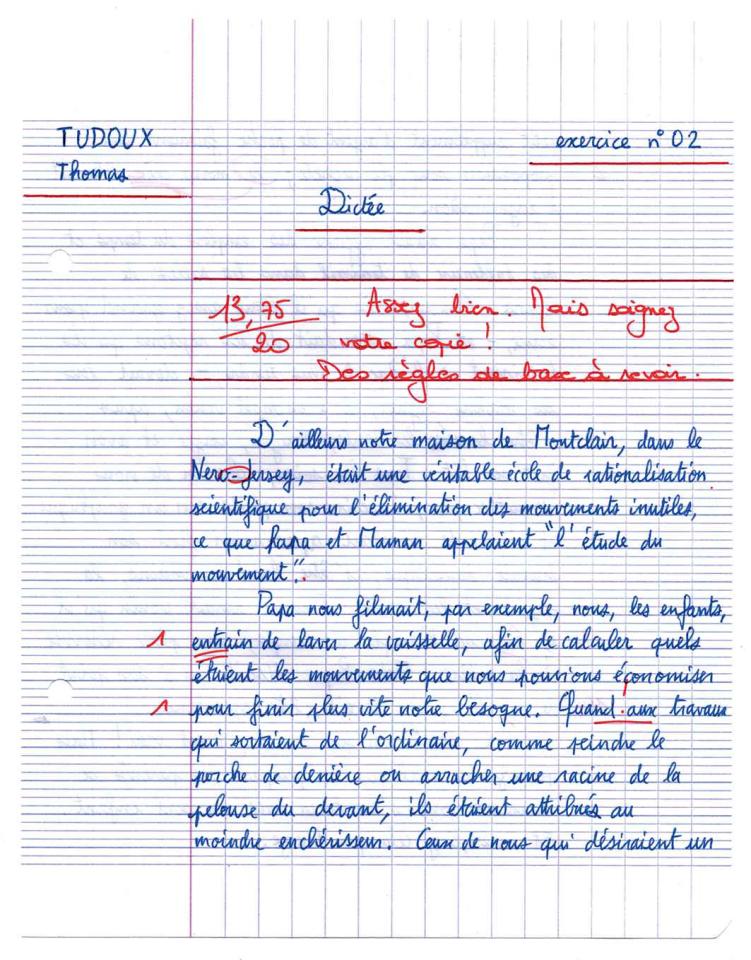 TUDOUX
Thomas
exercice n° 02
Dictée
13,75
20
Assez bien. Mais soignez
votre copie !
Des règles de base à revoir.
D'ailleurs notre maison de Montclair, dans le
New-Jersey, était une véritable école de rationalisation
scientifique pour l'élimination des mouvements inutiles,
ce que Papa et Maman appelaient "l'étude du
mouvement".
Papa nous filmait, par exemple, nous, les enfants,
1 entrain de laver la vaisselle, afin de calculer quels
étaient les mouvements que nous pouvions économiser
1 pour finir plus vite notre besogne. Quand aux travaux
qui sortaient de l'ordinaire, comme peindre le
porche de derrière ou arracher une racine de la
pelouse du devant, ils étaient attribués au
moindre enchérisseur. Ceux de nous qui désiraient un